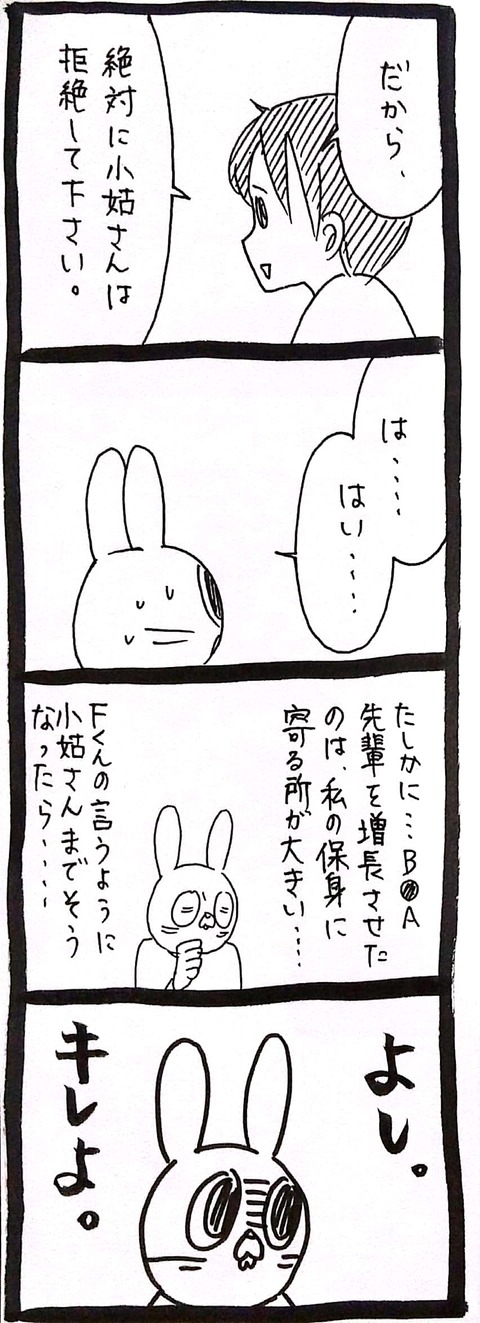 だから、
絶対に小姑さんは
拒絶して下さい。
は....
はい....
たしかに...B●A
先輩を増長させた
のは、私の保身に
寄る所が大きい....
Fくんの言うように
小姑さんまでそう
なったら....
よし。
キレよ。